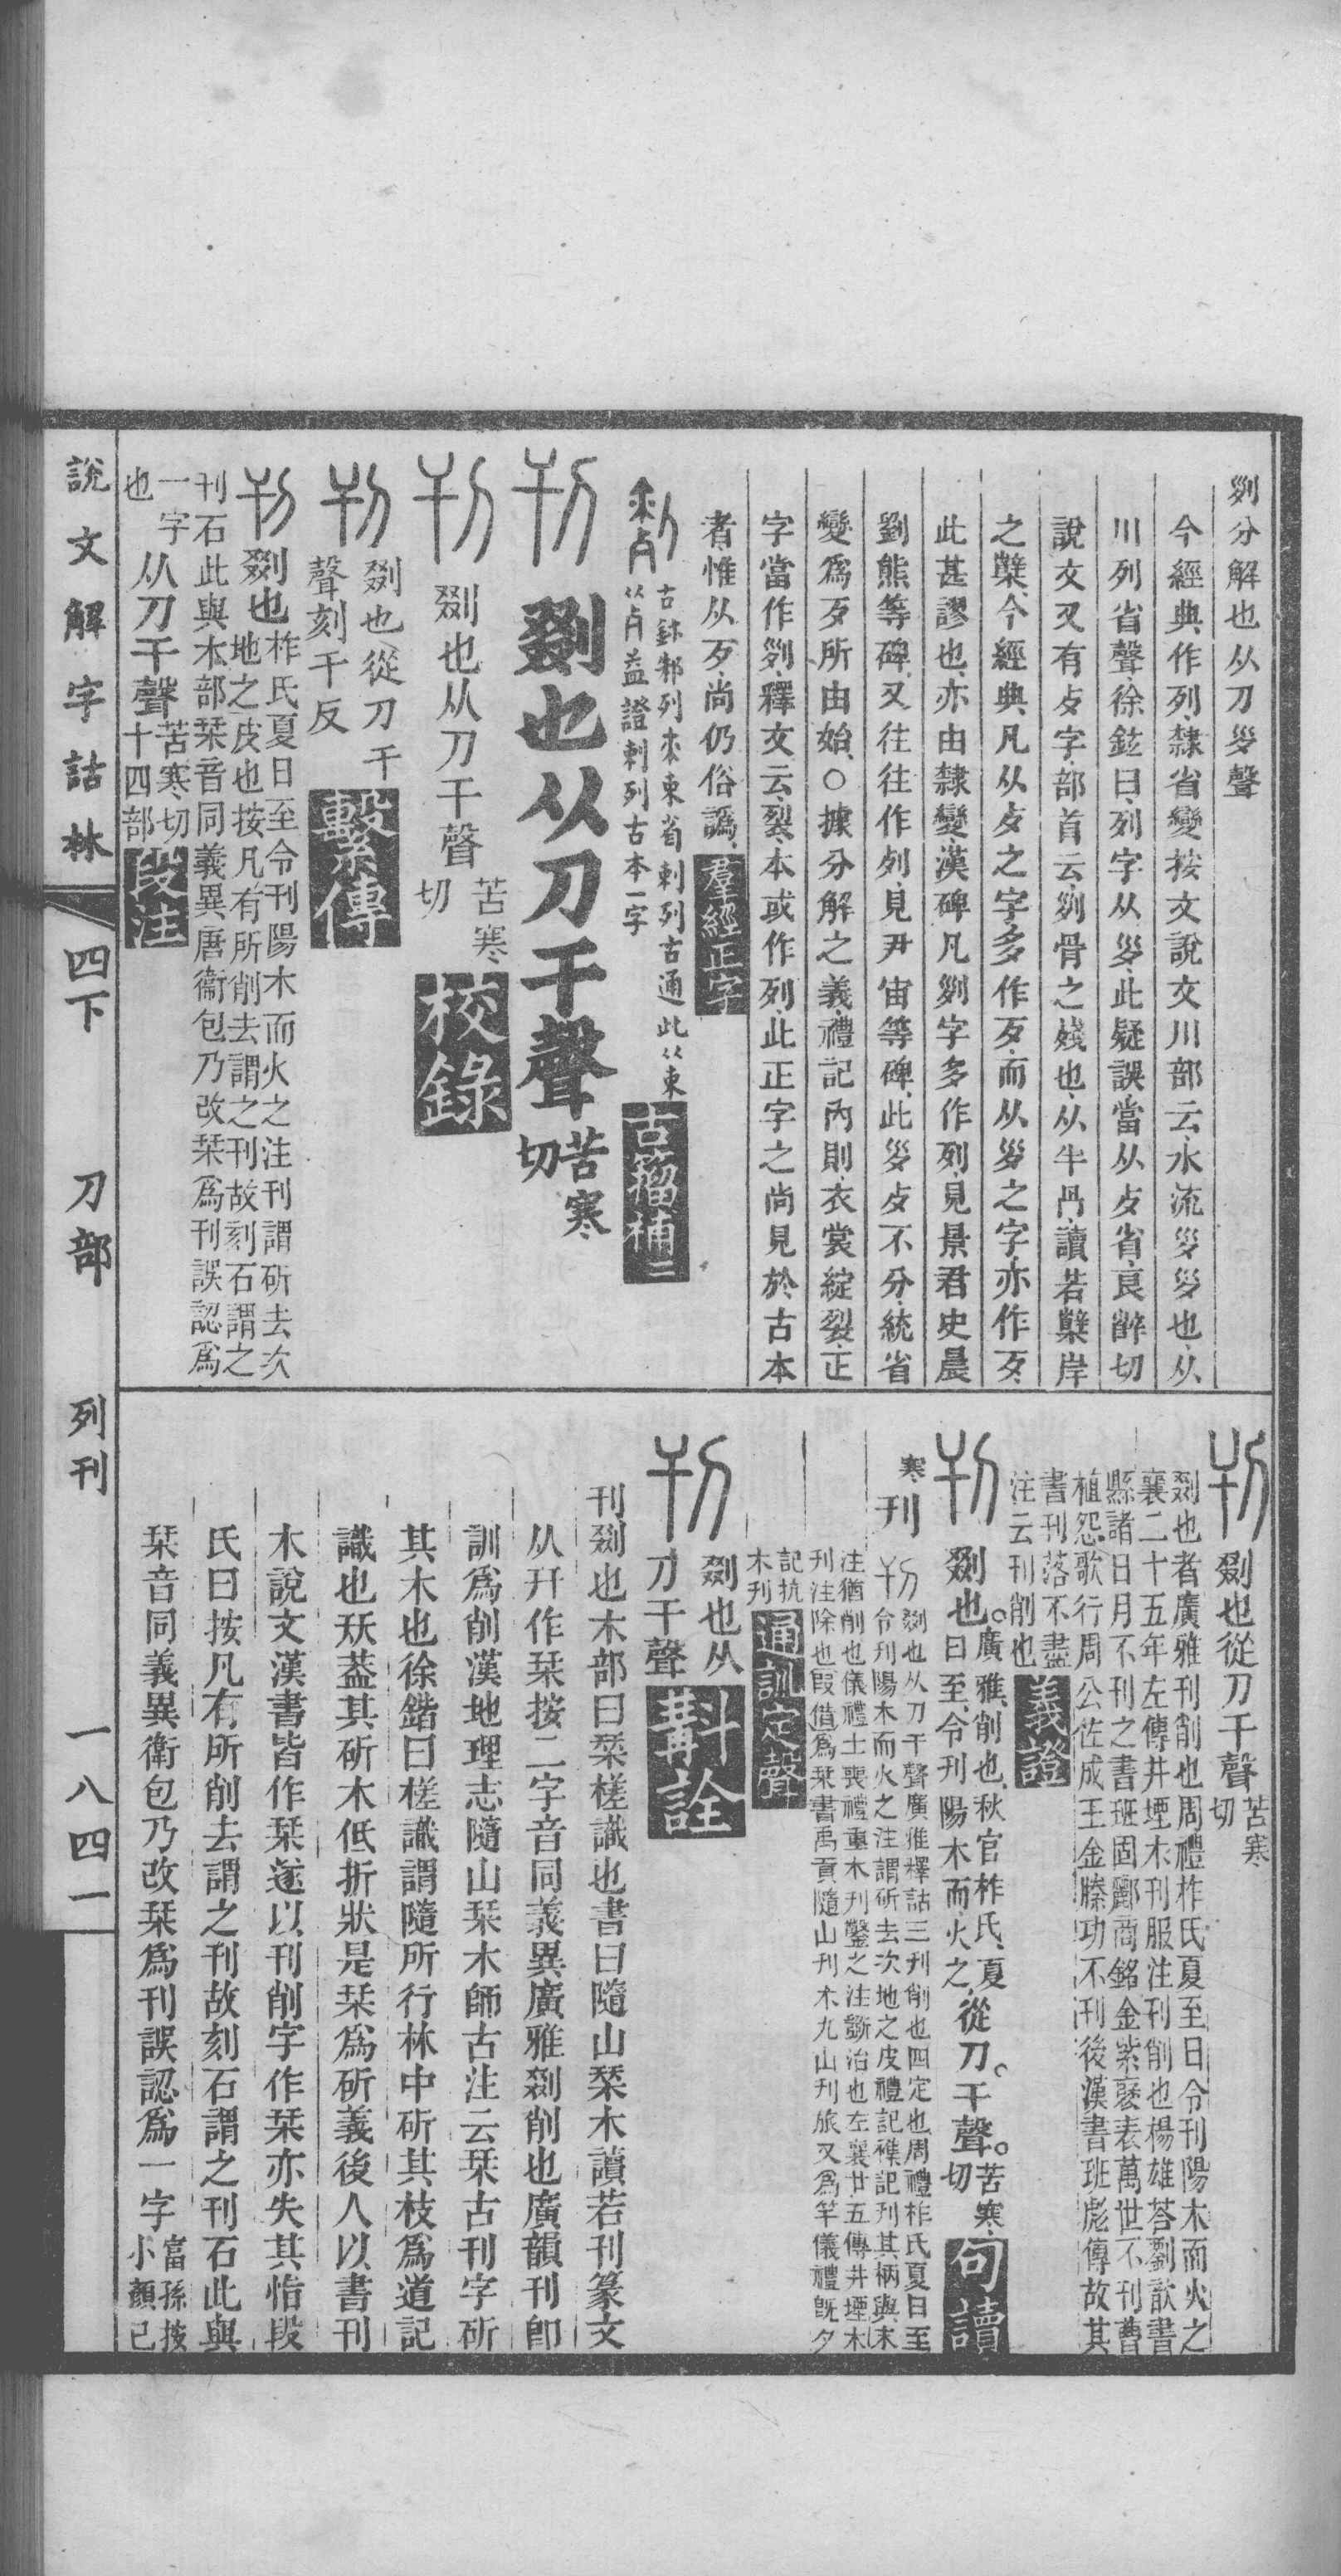 𠛱分解也从刀𡿪聲
今經典作列、隸省變按文說文川部云、水流𡿪𡿪也、从
川列省聲、徐鉉曰、列字从𡿪、此疑誤當从歺省、良辥切
說文又有歺字、部首云、𠛱骨之殘也、从半冎、讀若櫱岸
之櫱、今經典、凡从歺之字多作歹、而从𡿪之字、亦作歹、
此甚謬也、亦由隸變、漢碑凡𠛱字多作列、見景君史晨
劉熊等碑、又往往作列、見尹宙等碑、此𡿪歺不分、統省
變爲歹所由始、○據分解之義、禮記內則、衣裳綻裂、正
字當作𠛱、釋文云、裂、本或作列、此正字之尚見於古本
者、惟从歹、尚仍俗譌、羣經正字
古鉢邾列來東省剌列古通此从東
从占益證剌列古本一字
古籀補二
刊 剟也从刀干聲 苦寒切
刊 剟也从刀干聲 苦寒切 校錄
刊 剟也從刀干
聲刻干反 繫傳
刊 剟也 柞氏夏日至令刊陽木而火之注刊謂斫去次
地之皮也按凡有所削去謂之刊故刻石謂之
刊石此與木部栞音同義異唐衞包乃改栞爲刊誤認爲
一字
也 从刀干聲 苦寒切
十四部 段注
刊 剟也從刀干聲 苦寒
切
剟也者廣雅刊削也周禮柞氏夏至日令刊陽木而火之
襄二十五年左傳井堙木刊服注刊削也楊雄荅劉歆書
縣諸日月不刊之書班固酈商銘金紫褒表萬世不刊曹
植怨歌行周公佐成王金縢功不刊後漢書班彪傳故其
書刊落不盡
注云刊削也 義證
刊 剟也。廣雅、削也、秋官柞氏、夏
日至、令刊陽木而火之、從刀。干聲。苦寒
切 句讀
寒 刊 剟也从刀干聲廣雅釋詁三刊削也四定也周禮柞氏夏日至
令刊陽木而火之注謂斫去次地之皮禮記襍記刊其柄與末
注猶削也儀禮士喪禮重木刊鑿之注斲治也左襄廿五傳井堙木
刊注除也叚借爲栞書禹貢隨山刊木九山刊旅又爲竿儀禮旣夕
記抗
木刊 通訓定聲
刊 剟也从
刀干聲 斠詮
刊剟也木部曰栞槎識也書曰隨山栞木讀若刊篆文
从幵作栞按二字音同義異廣雅剟削也廣韻刊卽
訓爲削漢地理志隨山栞木師古注云栞古刊字斫
其木也徐鍇曰槎識謂隨所行林中斫其枝爲道記
識也㱃葢其斫木低折狀是栞爲斫義後人以書刊
木說文漢書皆作栞遂以刊削字作栞亦失其恉段
氏曰按凡有所削去謂之刊故刻石謂之刊石此與
栞音同義異衛包乃改栞爲刊誤認爲一字 富孫按
小顏已
說文解字詁林 四下 刀部 列刊 一八四一